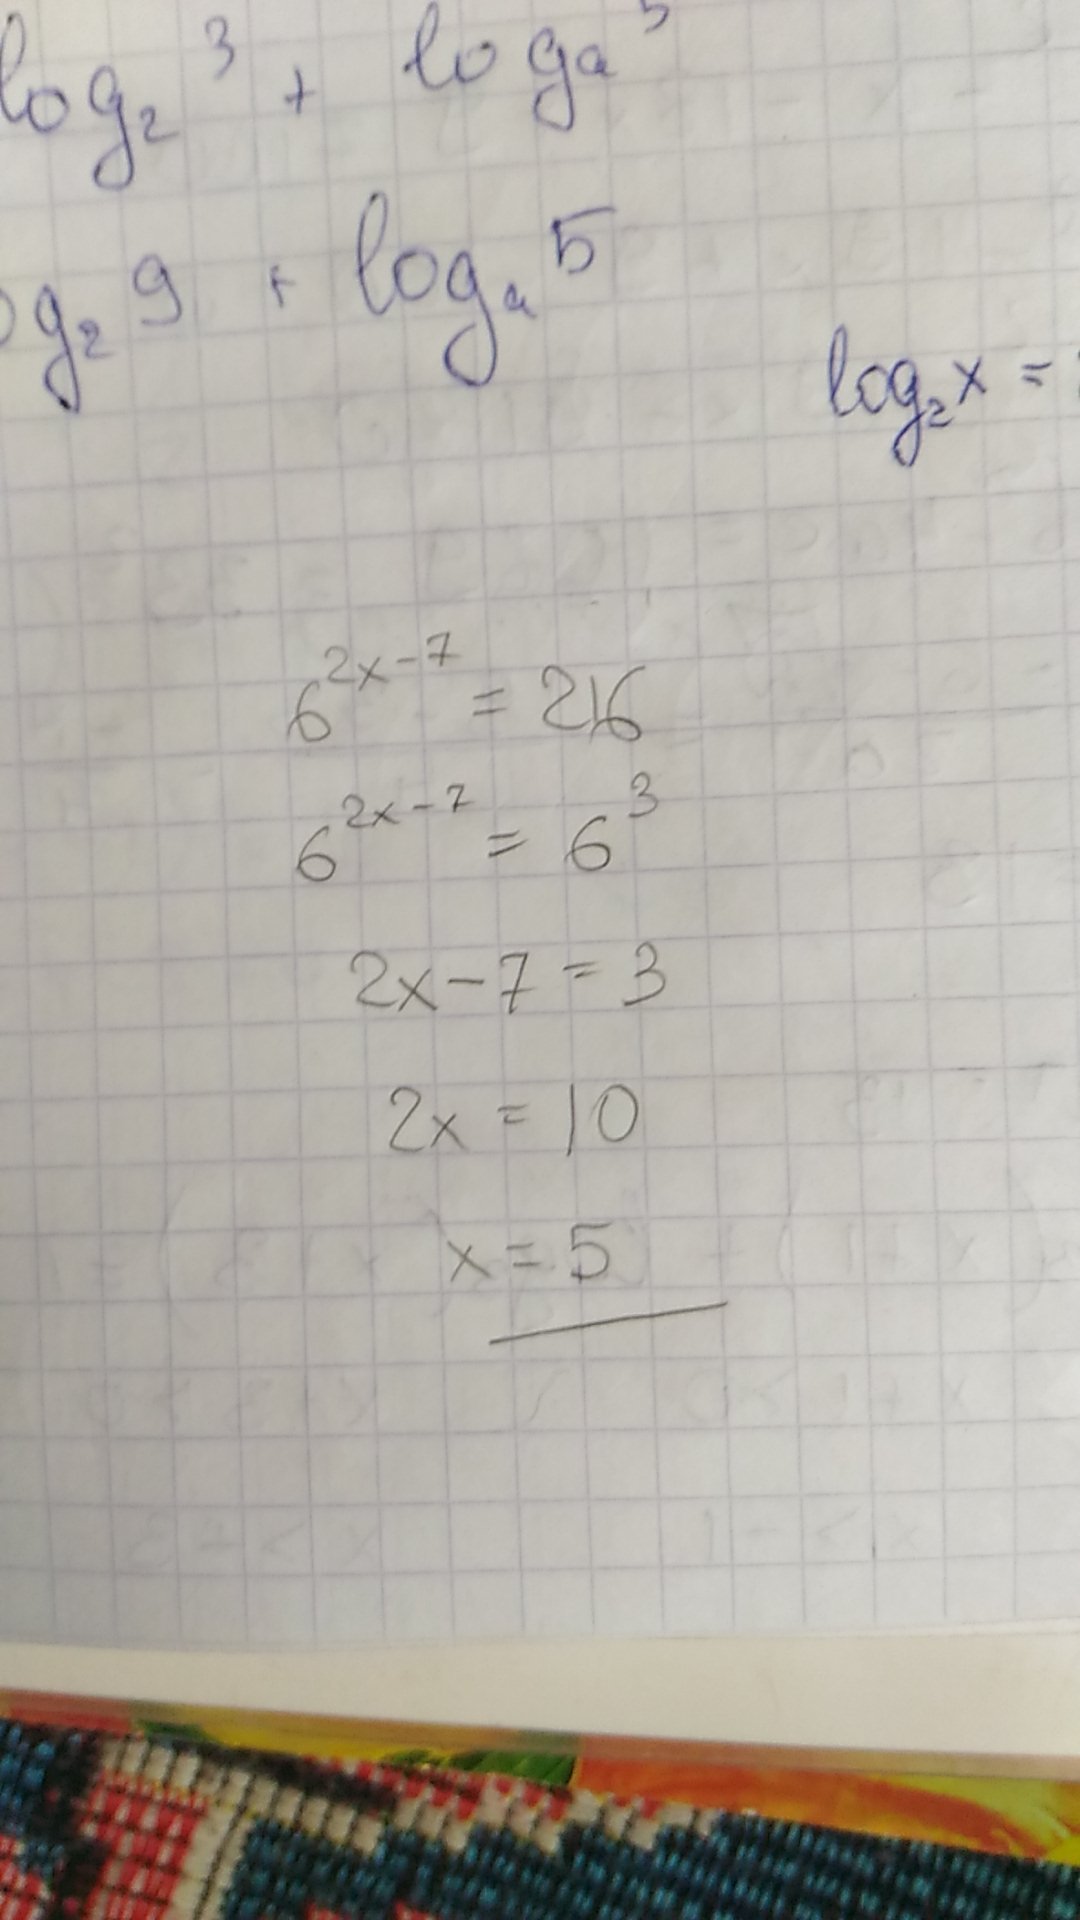 log₂ 3 + logₐ 5
log₂ 9 + logₐ 5
log₂x =
6^(2x-7) = 216
6^(2x-7) = 6^3
2x-7 = 3
2x = 10
x = 5